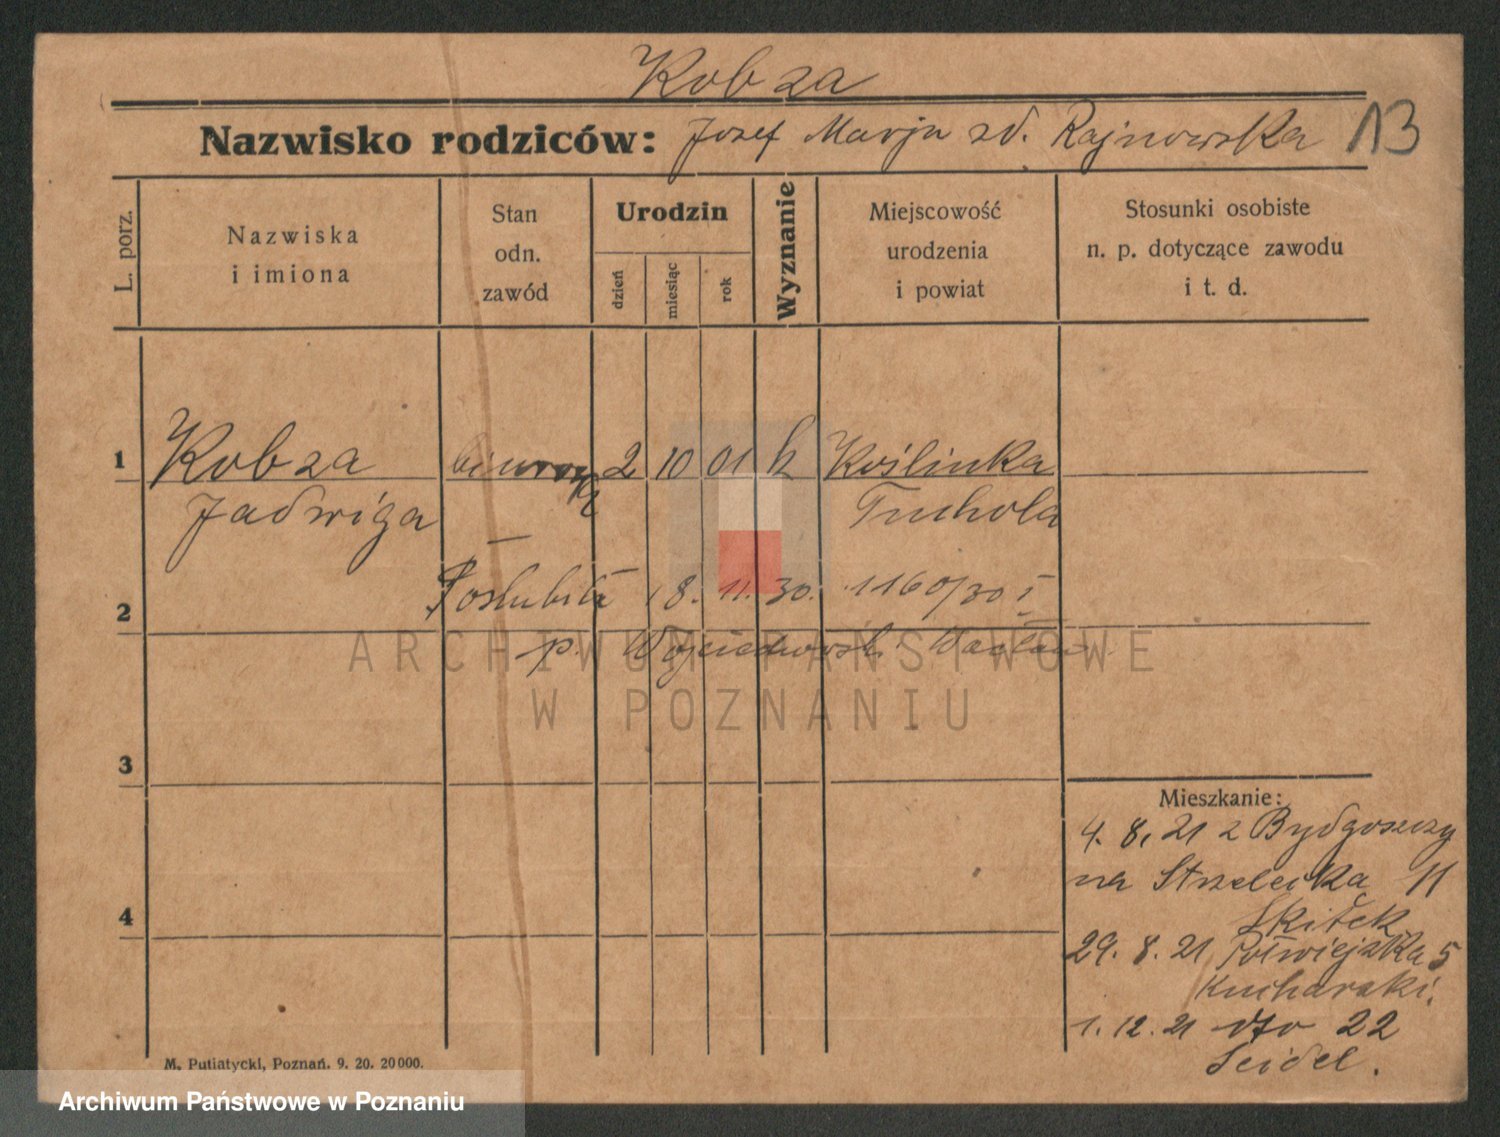 Kobza
Nazwisko rodziców: Józef Marja zd. Rajnowska 13
L. porz.
Nazwiska
i imiona
Stan
odn.
zawód
Urodzin
dzień
miesiąc
rok
Wyznanie
Miejscowość
urodzenia
i powiat
Stosunki osobiste
n. p. dotyczące zawodu
i t. d.
1 Kobza 2 10 01 k Koślinka
Jadwiga Tuchola
2 Poślubiła 18. 11. 30. 1160/30 I
p. Wojciechowski Wacław
3
4
Mieszkanie:
4. 8. 21 z Bydgoszczy
na Strzelecka 11
29. 8. 21 Półwiejska 5
Kucharski.
1. 12. 21 dto 22
Seidel.
M. Putiatycki, Poznań. 9. 20. 20000.
ARCHIWUM PAŃSTWOWE
W POZNANIU
Archiwum Państwowe w Poznaniu